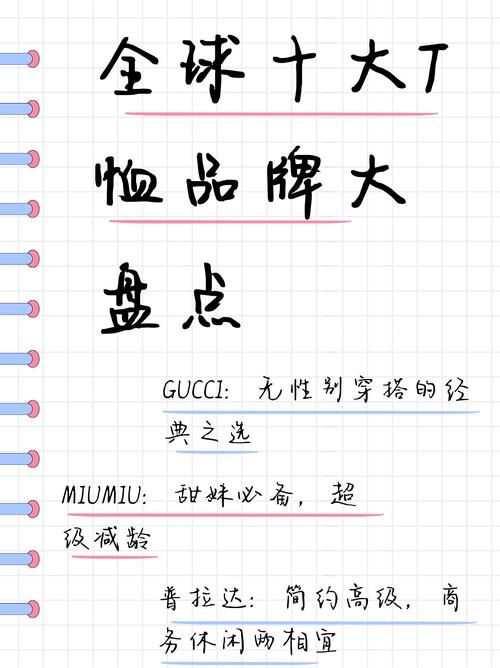 全球十大T
恤品牌大
盘点
GUCCI: 无性别穿搭的经
典之选
MIUMIU: 甜妹必备，超
级减龄
普拉达: 简约高级，商
务休闲两相宜